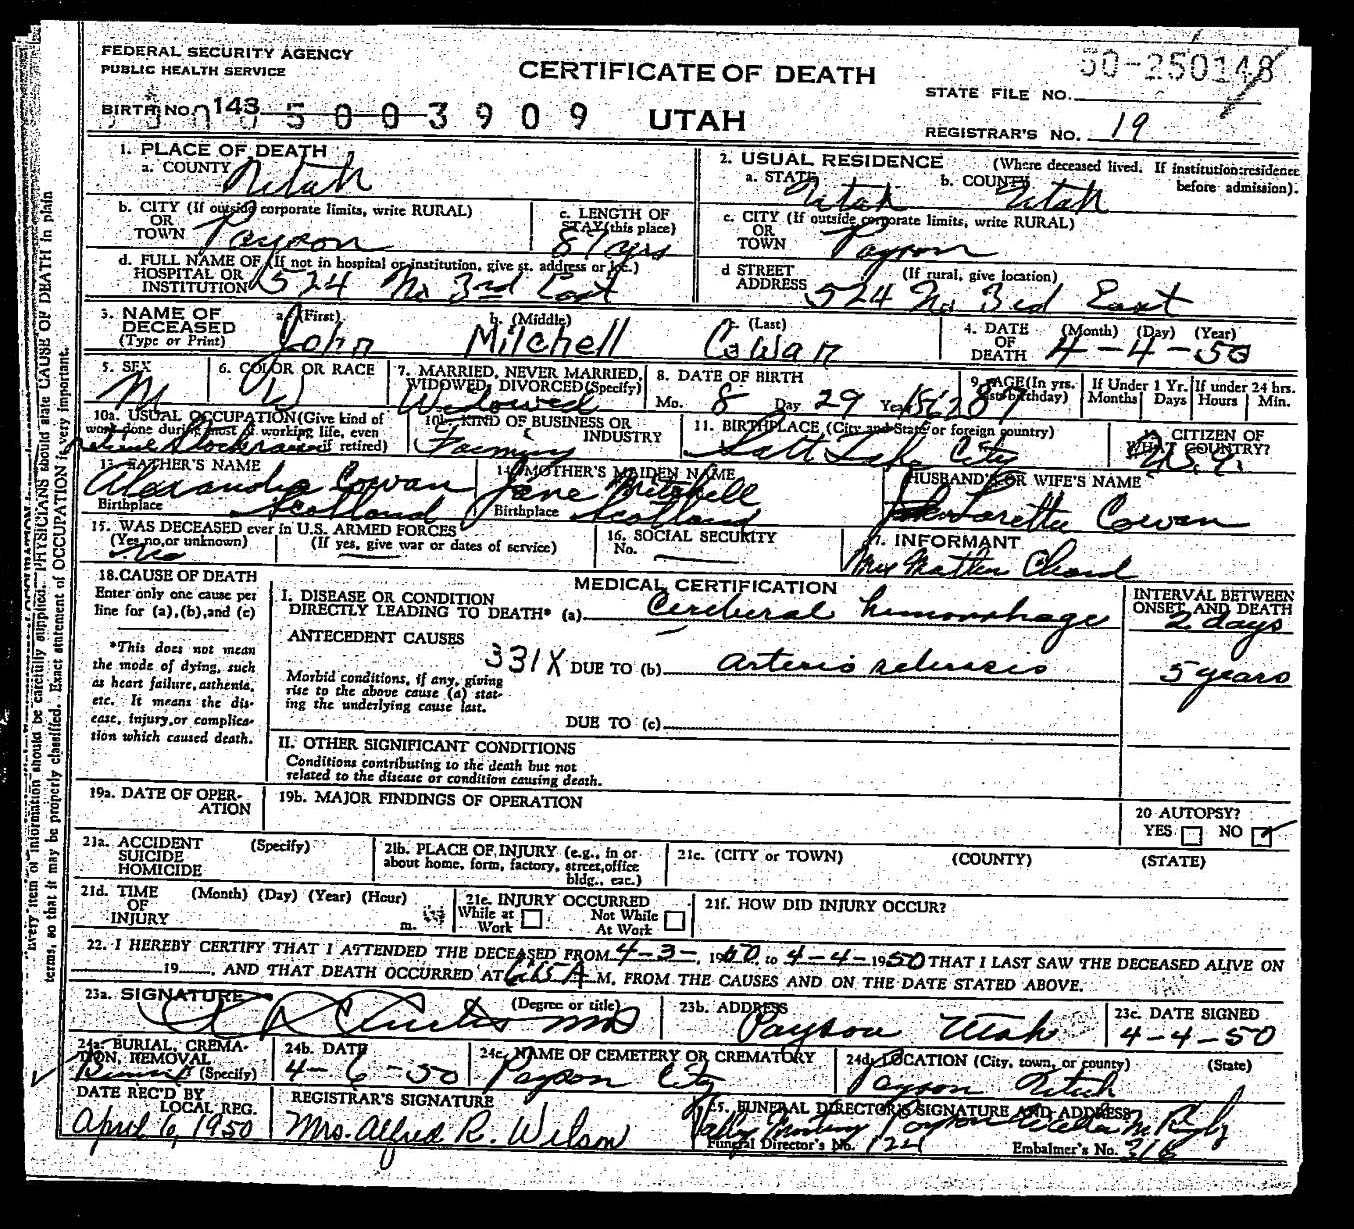 FEDERAL SECURITY AGENCY
PUBLIC HEALTH SERVICE
CERTIFICATE OF DEATH
50-250148
STATE FILE NO.
BIRTH NO. 143
5003909
UTAH
REGISTRAR'S NO. 19
1. PLACE OF DEATH
a. COUNTY Utah
2. USUAL RESIDENCE (Where deceased lived. If institution: residence before admission).
a. STATE Utah b. COUNTY Utah
b. CITY (If outside corporate limits, write RURAL)
OR
TOWN Payson
c. LENGTH OF
STAY (this place)
87 yrs
c. CITY (If outside corporate limits, write RURAL)
OR
TOWN Payson
d. FULL NAME OF (If not in hospital or institution, give st. address or loc.)
HOSPITAL OR
INSTITUTION 524 No 3rd East
d STREET (If rural, give location)
ADDRESS 524 No 3rd East
3. NAME OF
DECEASED
(Type or Print)
a. (First) John
b. (Middle) Mitchell
c. (Last) Cowan
4. DATE (Month) (Day) (Year)
OF
DEATH 4-4-50
5. SEX M
6. COLOR OR RACE W
7. MARRIED, NEVER MARRIED,
WIDOWED, DIVORCED (Specify)
Widowed
8. DATE OF BIRTH
Mo. 8 Day 29 Year 1862
9. AGE (In yrs.
last birthday) 87
If Under 1 Yr.
Months Days
If under 24 hrs.
Hours Min.
10a. USUAL OCCUPATION (Give kind of
work done during most of working life, even
if retired)
10b. KIND OF BUSINESS OR
INDUSTRY
Farming
11. BIRTHPLACE (City and State or foreign country)
Salt Lake City
12. CITIZEN OF
WHAT COUNTRY?
U.S.A.
13. FATHER'S NAME
Alexander Cowan
Birthplace Scotland
14. MOTHER'S MAIDEN NAME
Jane Mitchell
Birthplace Scotland
HUSBAND'S OR WIFE'S NAME
Loretta Cowan
15. WAS DECEASED ever in U.S. ARMED FORCES
(Yes, no, or unknown) (If yes, give war or dates of service)
No
16. SOCIAL SECURITY
No.
17. INFORMANT
18. CAUSE OF DEATH
Enter only one cause per
line for (a), (b), and (c)
*This does not mean
the mode of dying, such
as heart failure, asthenia,
etc. It means the dis-
ease, injury, or complica-
tion which caused death.
MEDICAL CERTIFICATION
I. DISEASE OR CONDITION
DIRECTLY LEADING TO DEATH* (a) Cerebral hemorrhage
INTERVAL BETWEEN
ONSET AND DEATH
2 days
ANTECEDENT CAUSES
331X DUE TO (b) arterio sclerosis 5 years
Morbid conditions, if any, giving
rise to the above cause (a) stat-
ing the underlying cause last.
DUE TO (c)
II. OTHER SIGNIFICANT CONDITIONS
Conditions contributing to the death but not
related to the disease or condition causing death.
19a. DATE OF OPER-
ATION
19b. MAJOR FINDINGS OF OPERATION
20 AUTOPSY?
YES NO
21a. ACCIDENT (Specify)
SUICIDE
HOMICIDE
21b. PLACE OF INJURY (e.g., in or
about home, form, factory, street, office
bldg., eac.)
21c. (CITY or TOWN) (COUNTY) (STATE)
21d. TIME (Month) (Day) (Year) (Hour)
OF
INJURY m.
21e. INJURY OCCURRED
While at Work Not While At Work
21f. HOW DID INJURY OCCUR?
22. I HEREBY CERTIFY THAT I ATTENDED THE DECEASED FROM 4-3-, 1950 to 4-4-1950 THAT I LAST SAW THE DECEASED ALIVE ON
19, AND THAT DEATH OCCURRED AT A M. FROM THE CAUSES AND ON THE DATE STATED ABOVE.
23a. SIGNATURE (Degree or title)
Curtis MD
23b. ADDRESS
Payson Utah
23c. DATE SIGNED
4-4-50
24a. BURIAL, CREMA-
TION, REMOVAL
(Specify) Burial
24b. DATE
4-6-50
24c. NAME OF CEMETERY OR CREMATORY
Payson City
24d. LOCATION (City, town, or county) (State)
Payson Utah
DATE REC'D BY
LOCAL REG.
April 6, 1950
REGISTRAR'S SIGNATURE
Mrs. Alfred R. Wilson
25. FUNERAL DIRECTOR'S SIGNATURE AND ADDRESS
Valley Mortuary Payson
Funeral Director's No. 124 Embalmer's No. 316
Every item of information should be carefully supplied. PHYSICIANS should state CAUSE OF DEATH in plain
terms, so that it may be properly classified. Exact statement of OCCUPATION is very important.